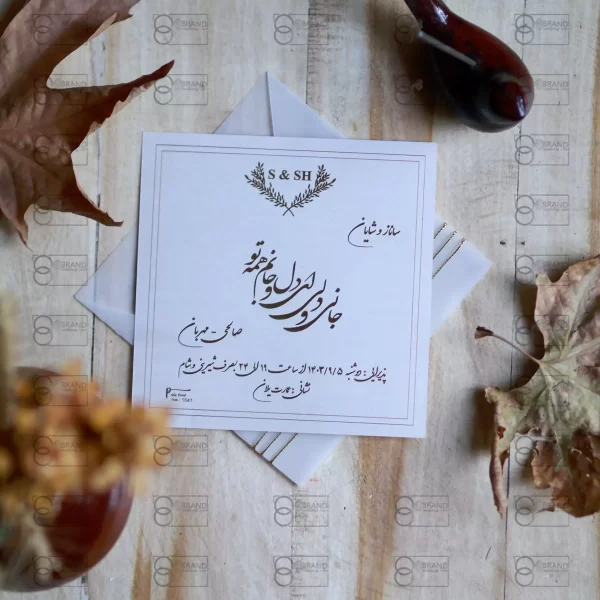 S & SH
ساناز و شایان
جانی و دلی ای دل و جانم همه تو
صالحی - مهربان
پذیرایی : دوشنبه ۱۴۰۳/۹/۵ از ساعت ۱۹ الی ۲۴ بصرف شیرینی و شام
نشانی : عمارت یلدان
BRAND